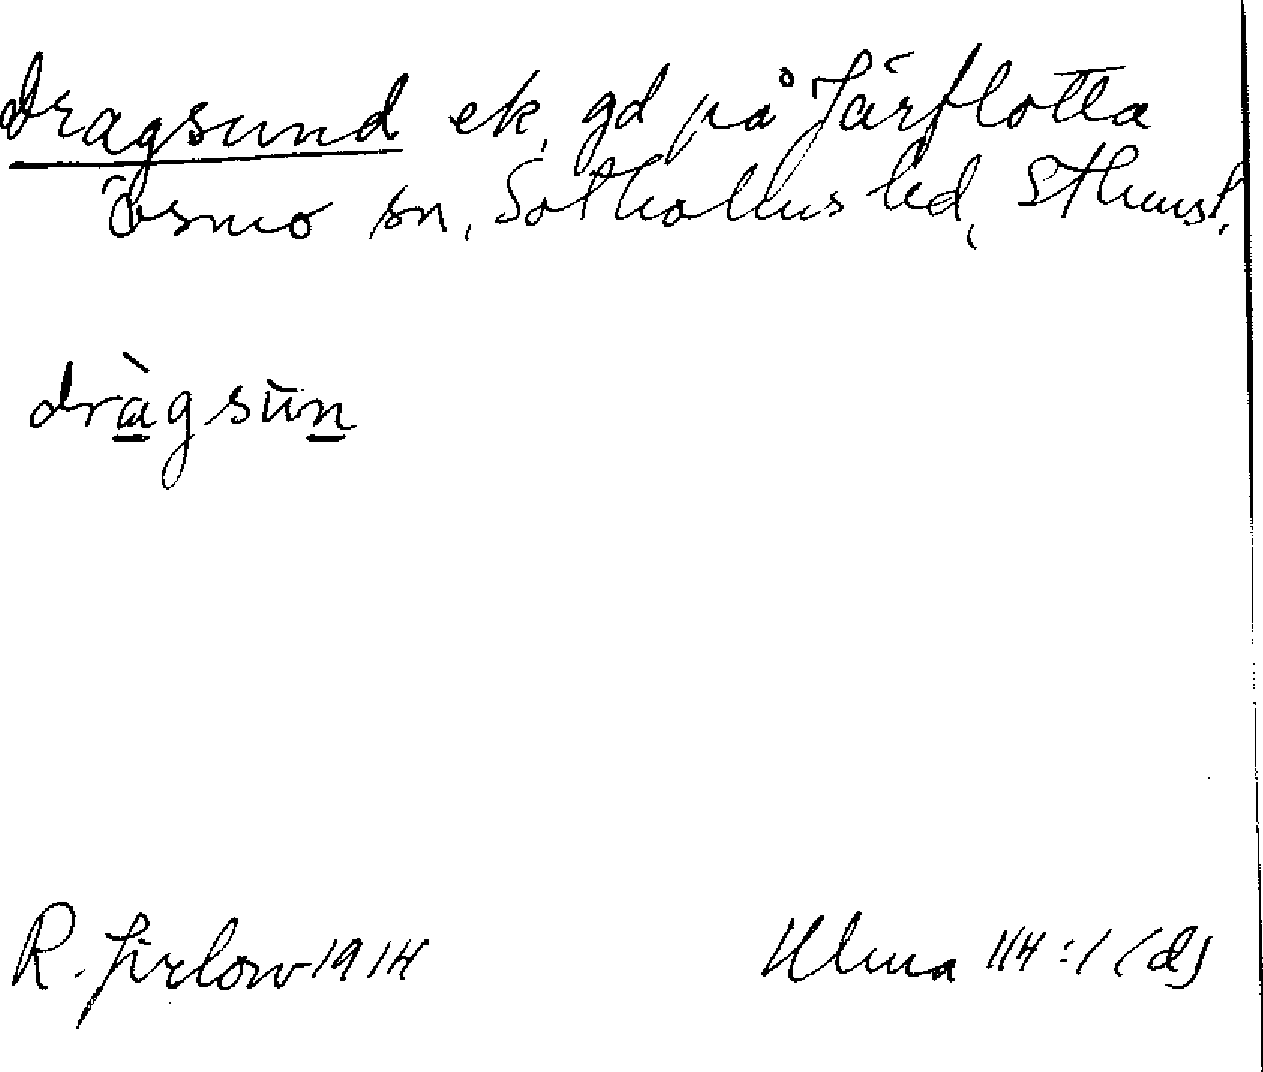 Dragsund ek, gd på Järflotta
Ösmo sn, Sotholms hd, Sthmsl.
dràgsūn
R. Jirlow 1914
Ulma 114:1 (d)